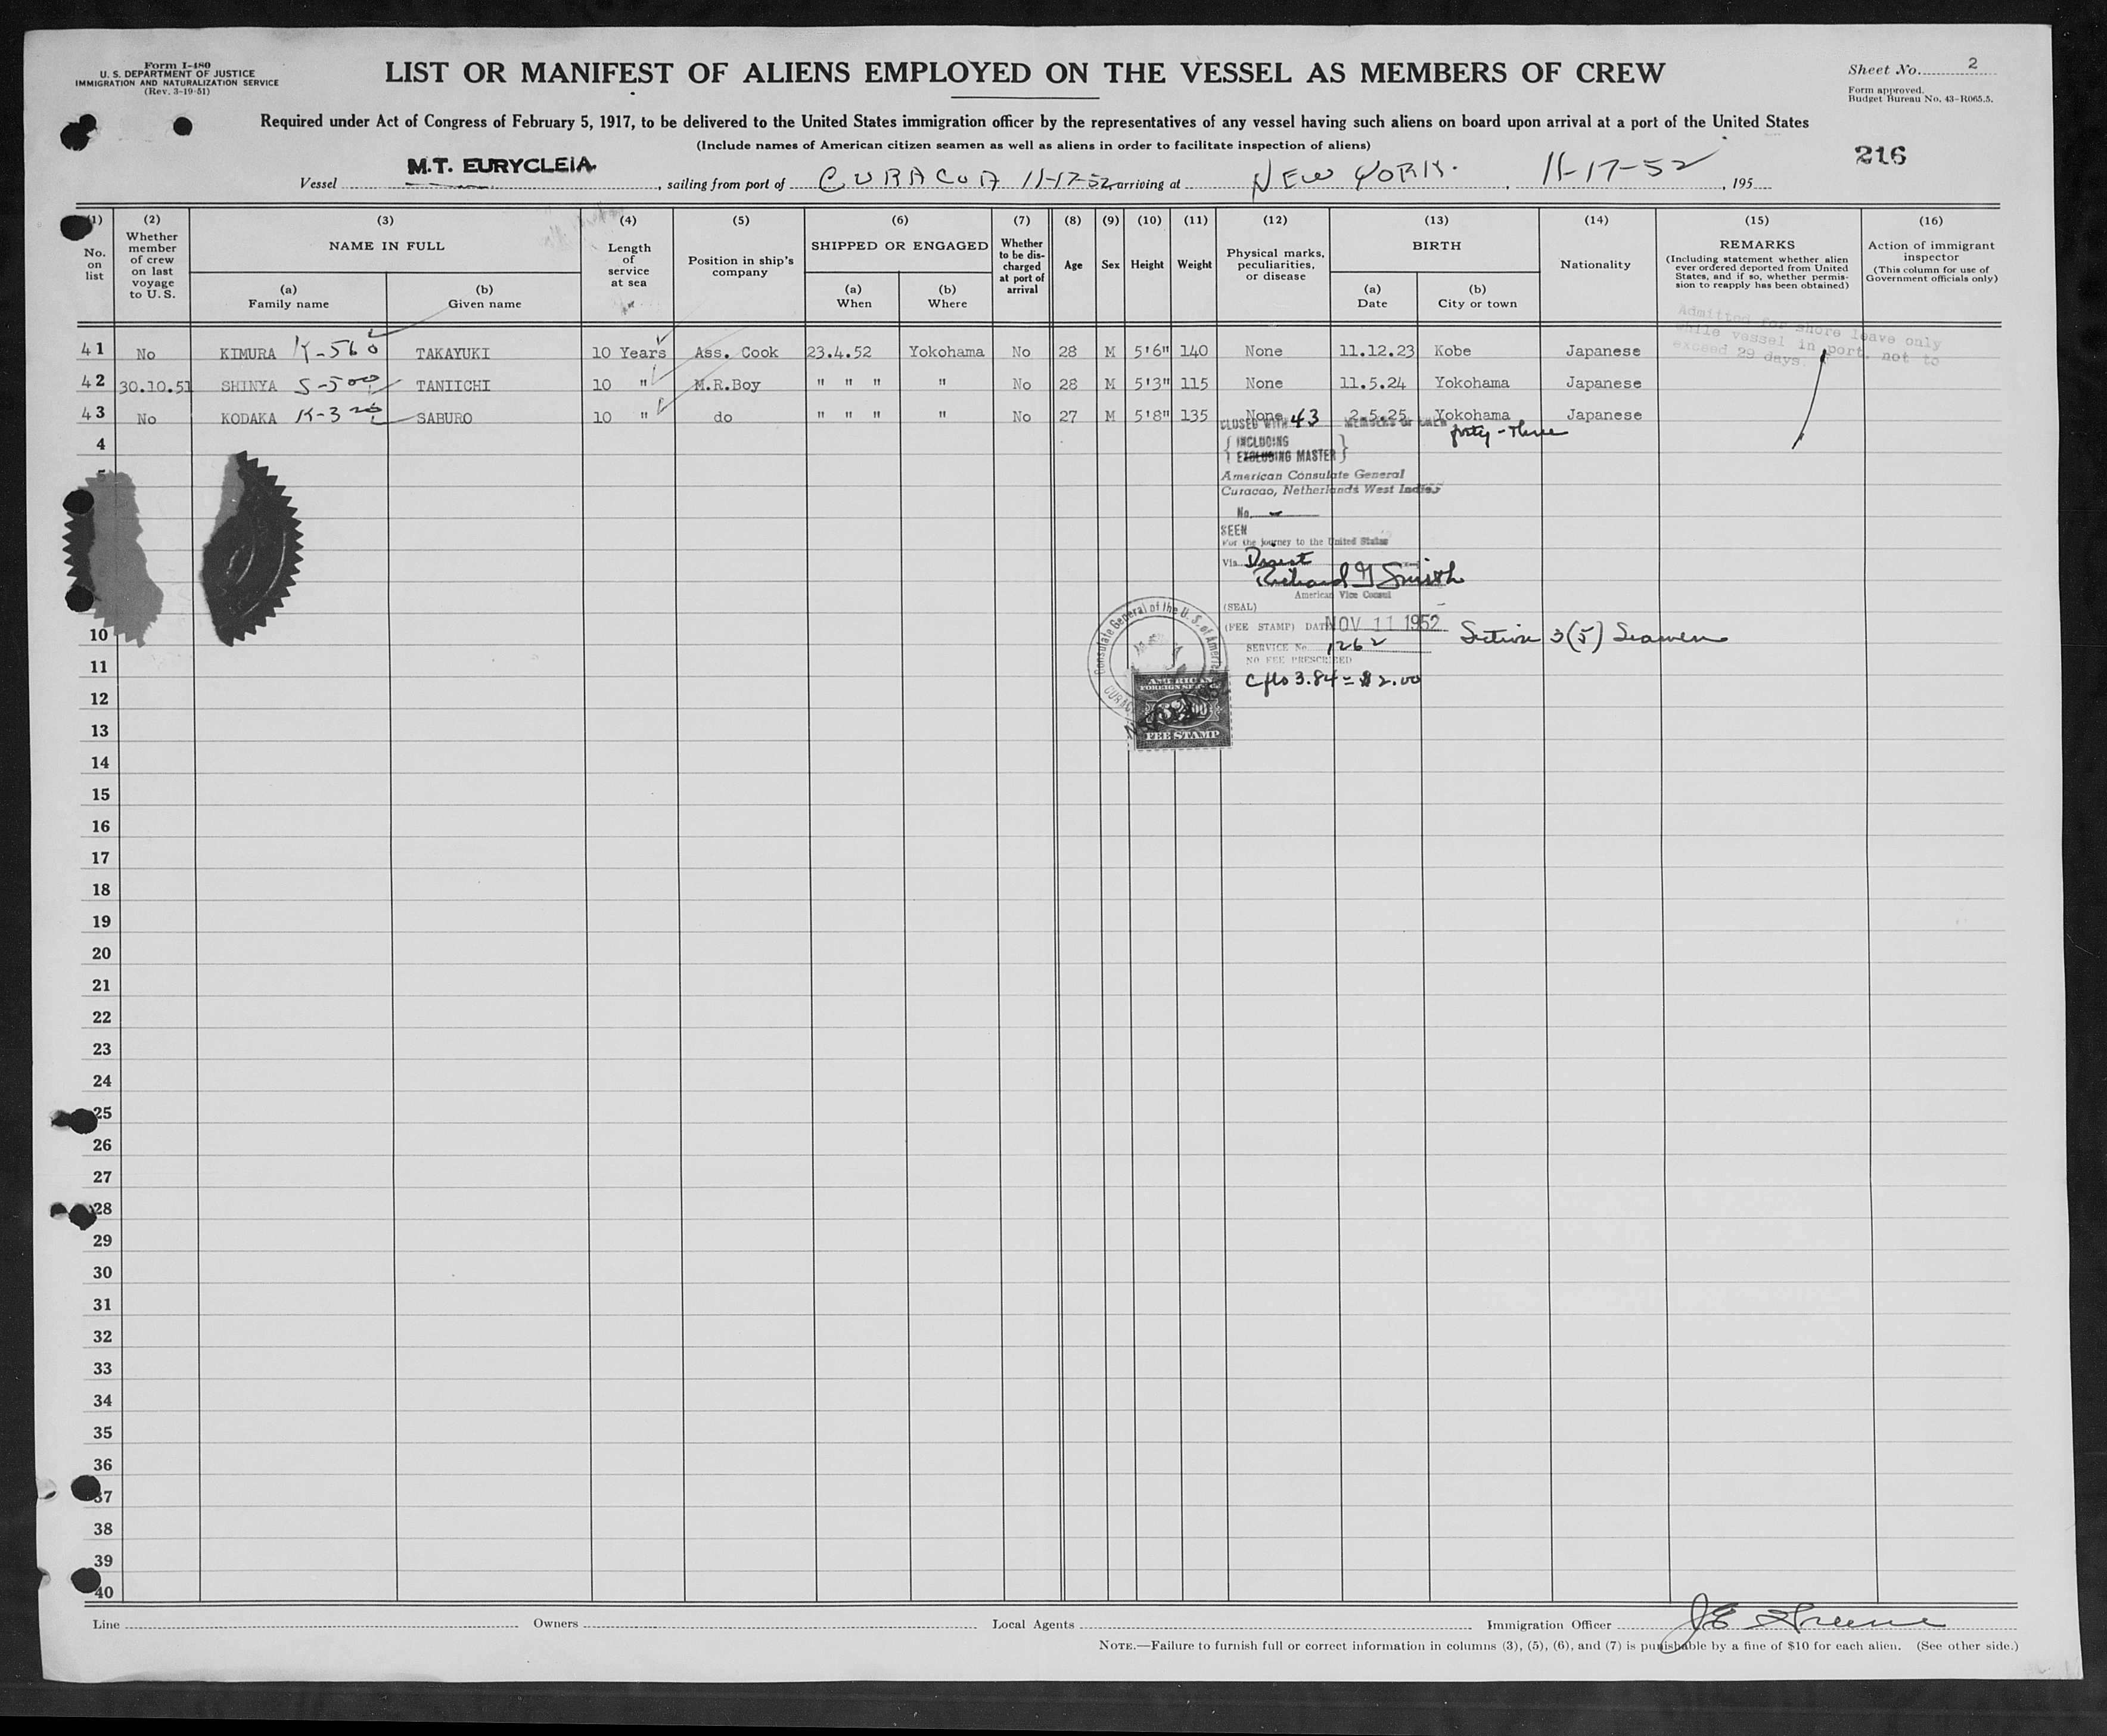 Form I-480
U. S. DEPARTMENT OF JUSTICE
IMMIGRATION AND NATURALIZATION SERVICE
(Rev. 3-19-51)
LIST OR MANIFEST OF ALIENS EMPLOYED ON THE VESSEL AS MEMBERS OF CREW
Sheet No. 2
Form approved.
Budget Bureau No. 43-R065.5.
Required under Act of Congress of February 5, 1917, to be delivered to the United States immigration officer by the representatives of any vessel having such aliens on board upon arrival at a port of the United States
(Include names of American citizen seamen as well as aliens in order to facilitate inspection of aliens)
216
Vessel M.T. EURYCLEIA, sailing from port of CURACOA 11-17-52 arriving at NEW YORK. 11-17-52, 195
(1) (2) (3) (4) (5) (6) (7) (8) (9) (10) (11) (12) (13) (14) (15) (16)
No. on list
Whether member of crew on last voyage to U. S.
NAME IN FULL
(a) Family name
(b) Given name
Length of service at sea
Position in ship's company
SHIPPED OR ENGAGED
(a) When
(b) Where
Whether to be discharged at port of arrival
Age
Sex
Height
Weight
Physical marks, peculiarities, or disease
BIRTH
(a) Date
(b) City or town
Nationality
REMARKS
(Including statement whether alien ever ordered deported from United States, and if so, whether permission to reapply has been obtained)
Action of immigrant inspector
(This column for use of Government officials only)
Admitted for shore leave only
while vessel in port, not to
exceed 29 days.
41 No KIMURA K-560 TAKAYUKI 10 Years Ass. Cook 23.4.52 Yokohama No 28 M 5'6" 140 None 11.12.23 Kobe Japanese
42 30.10.51 SHINYA S-500 TANIICHI 10 " M.R.Boy " " " " No 28 M 5'3" 115 None 11.5.24 Yokohama Japanese
43 No KODAKA K-320 SABURO 10 " do " " " " No 27 M 5'8" 135 None 2.5.25 Yokohama Japanese
CLOSED WITH 43 MEMBERS OF CREW
forty-three
4
INCLUDING
EXCLUDING MASTER
5
American Consulate General
Curacao, Netherlands West Indies
No. -
SEEN
For the journey to the United States
Via Direct
Richard G Smith
American Vice Consul
(SEAL)
(FEE STAMP) DATE NOV 11 1952
Section 3(5) Seamen
SERVICE No. 1262
NO FEE PRESCRIBED
Cfls 3.84 = $2.00
Consulate General of the U. S. of America
AMERICAN
FOREIGN SERVICE
FEE STAMP
10
11
12
13
14
15
16
17
18
19
20
21
22
23
24
25
26
27
28
29
30
31
32
33
34
35
36
37
38
39
40
Line Owners Local Agents Immigration Officer J E Greene
NOTE.—Failure to furnish full or correct information in columns (3), (5), (6), and (7) is punishable by a fine of $10 for each alien. (See other side.)